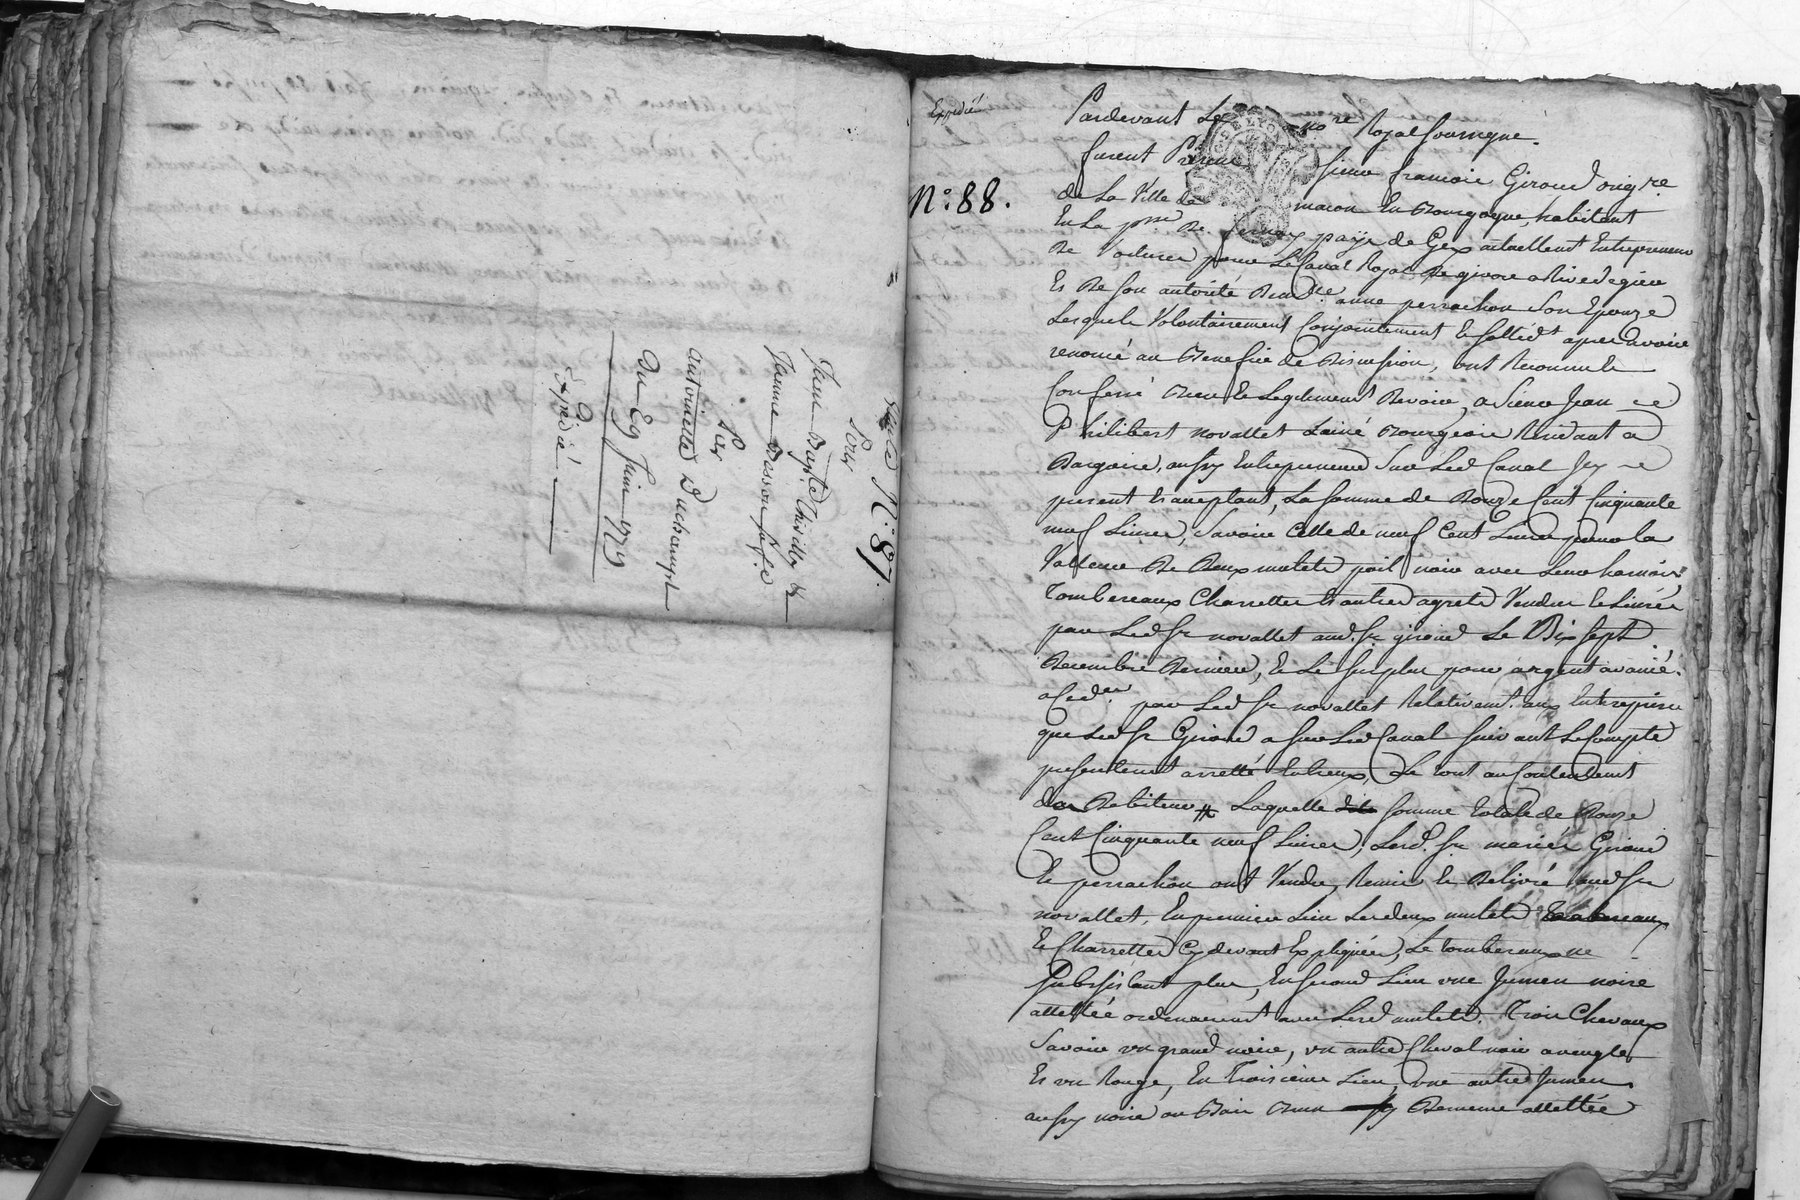 Vente N.° 87.
Pour
Jean Bapt.e Chirolle &
Jeanne Besson sa f.e
Par
antoinette Duchampt
Du 29 Juin 1773
Expédié
Expédié
N.° 88.
Pardevant Le no.re Royal soussigné
furent Présens sieur francois Giroud orig.re
de La Ville de macon En Bourgogne, habitant
En La p.sse De fernex payis de Gex actuellem.t Entrepreneur
De Voitures pour Le Canal Royal De givors a Rivedegier
Et De son autorité Dem.lle anne perrachon Son Epouze
Lesquels Volontairement Conjointement Et sollid.t apres avoir
renoncé au Benefice de Discussion, ont Reconnu Et
Confessé Bien Et Legitiment Devoir, a Sieur Jean
Philibert novallet Lainé Bourgeois Residant a
Dargoire, aussy Entrepreneur Sur Led Canal Icy
present Et aceptant, La Somme de Douze Cent Cinquante
neuf Livres, Savoir Celle de neuf Cent Livres pour la
Valleur De Deux mulets poil noir avec Leurs harnois
Tombereaux Charrettes Et autres agrets Vendus Et Livrés
par Led Sr novallet aud. Sr giroud Le Dix sept
Decembre Dernier, Et Le surplus pour argent avancé
par Led Sr novallet Relativem.t aux Entreprises
que Led Sr Giroud a sur Led Canal suivant Le Compte
presentement arretté Entreux, Le tout au Contentement
des Debiteurs # Laquelle dite Somme totale de Douze
Cent Cinquante neuf Livres, Lesd. Sr mariés Giroud
Et perrachon ont Vendu, Remis Et Delivré aud Sr
novallet, En premier Lieu Les deux mulets
Et Charrettes Cy devant Expliquées, Le tombereaux ne
Subsistant plus, En second Lieu une Jumen noire
attellée ordinairement avec Lesd mulets. Trois Chevaux
Savoir un grand noir, un autre Cheval noir aveugle
Et un Rouge, En Troisieme Lieu, une autre Jumen
aussy noire ou Bai Brun De meme attellée